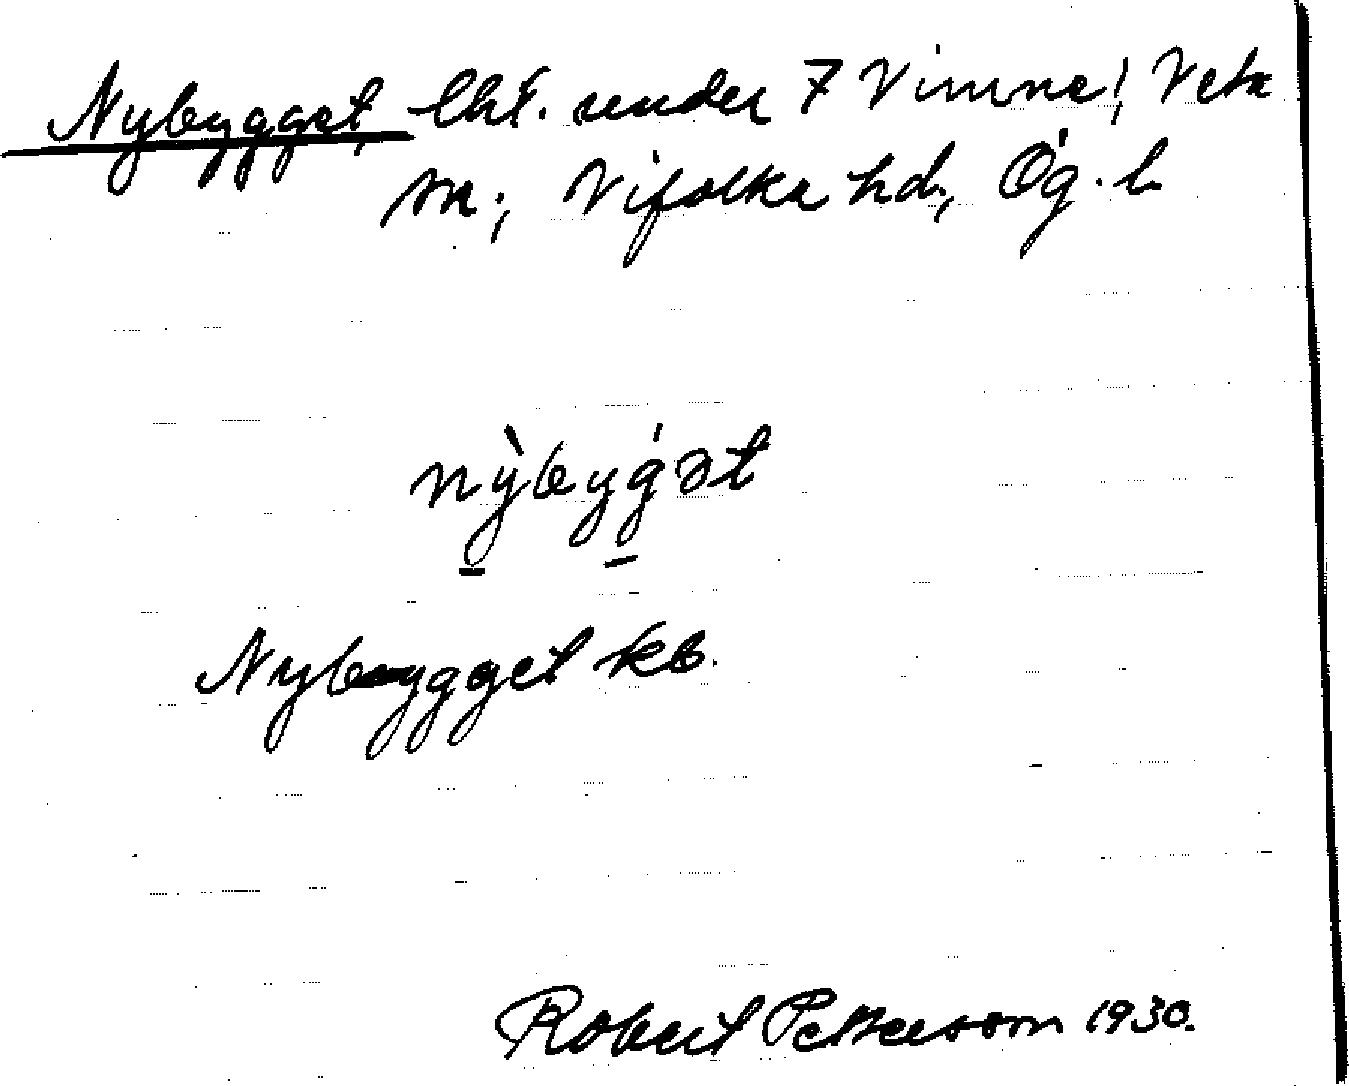 Nybygget, lht. under 7 Vimne, Veta
sn; Vifolka hd, Ög. l.
nỳbyǵət
Nybygget kb.
Robert Petterson 1930.